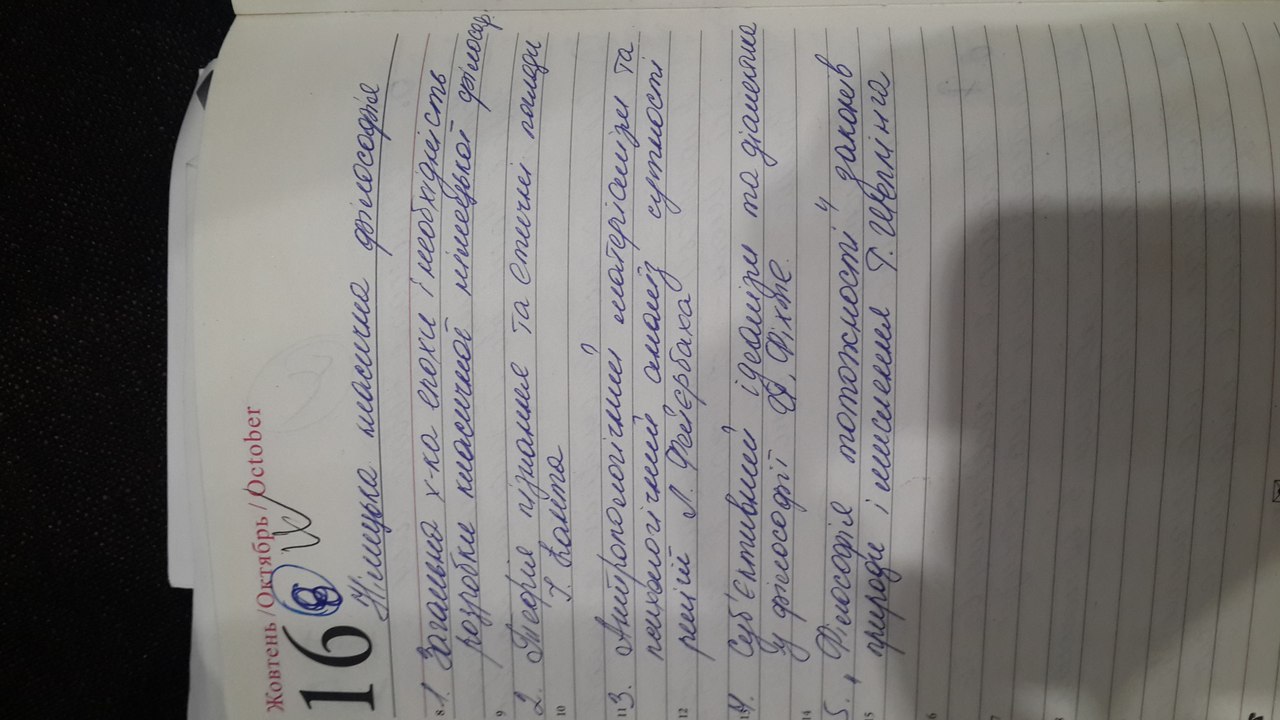 Жовтень / Октябрь / October
16 8
Німецька класична філософія
8 1. Загальна х-ка епохи і необхідність
розробки класичної німецької філософ.
9
2. Теорія пізнання та етичні погляди
10 І. Канта
11 3. Антропологічний матеріалізм та
психологічний аналіз сутності
12 релігій Л. Феєрбаха
13 4. Суб'єктивний ідеалізм та діалектика
у філософії Ф. Фіхте.
14
5. Філософія тотожності законів
15 природи і мислення Г. Шеллінга